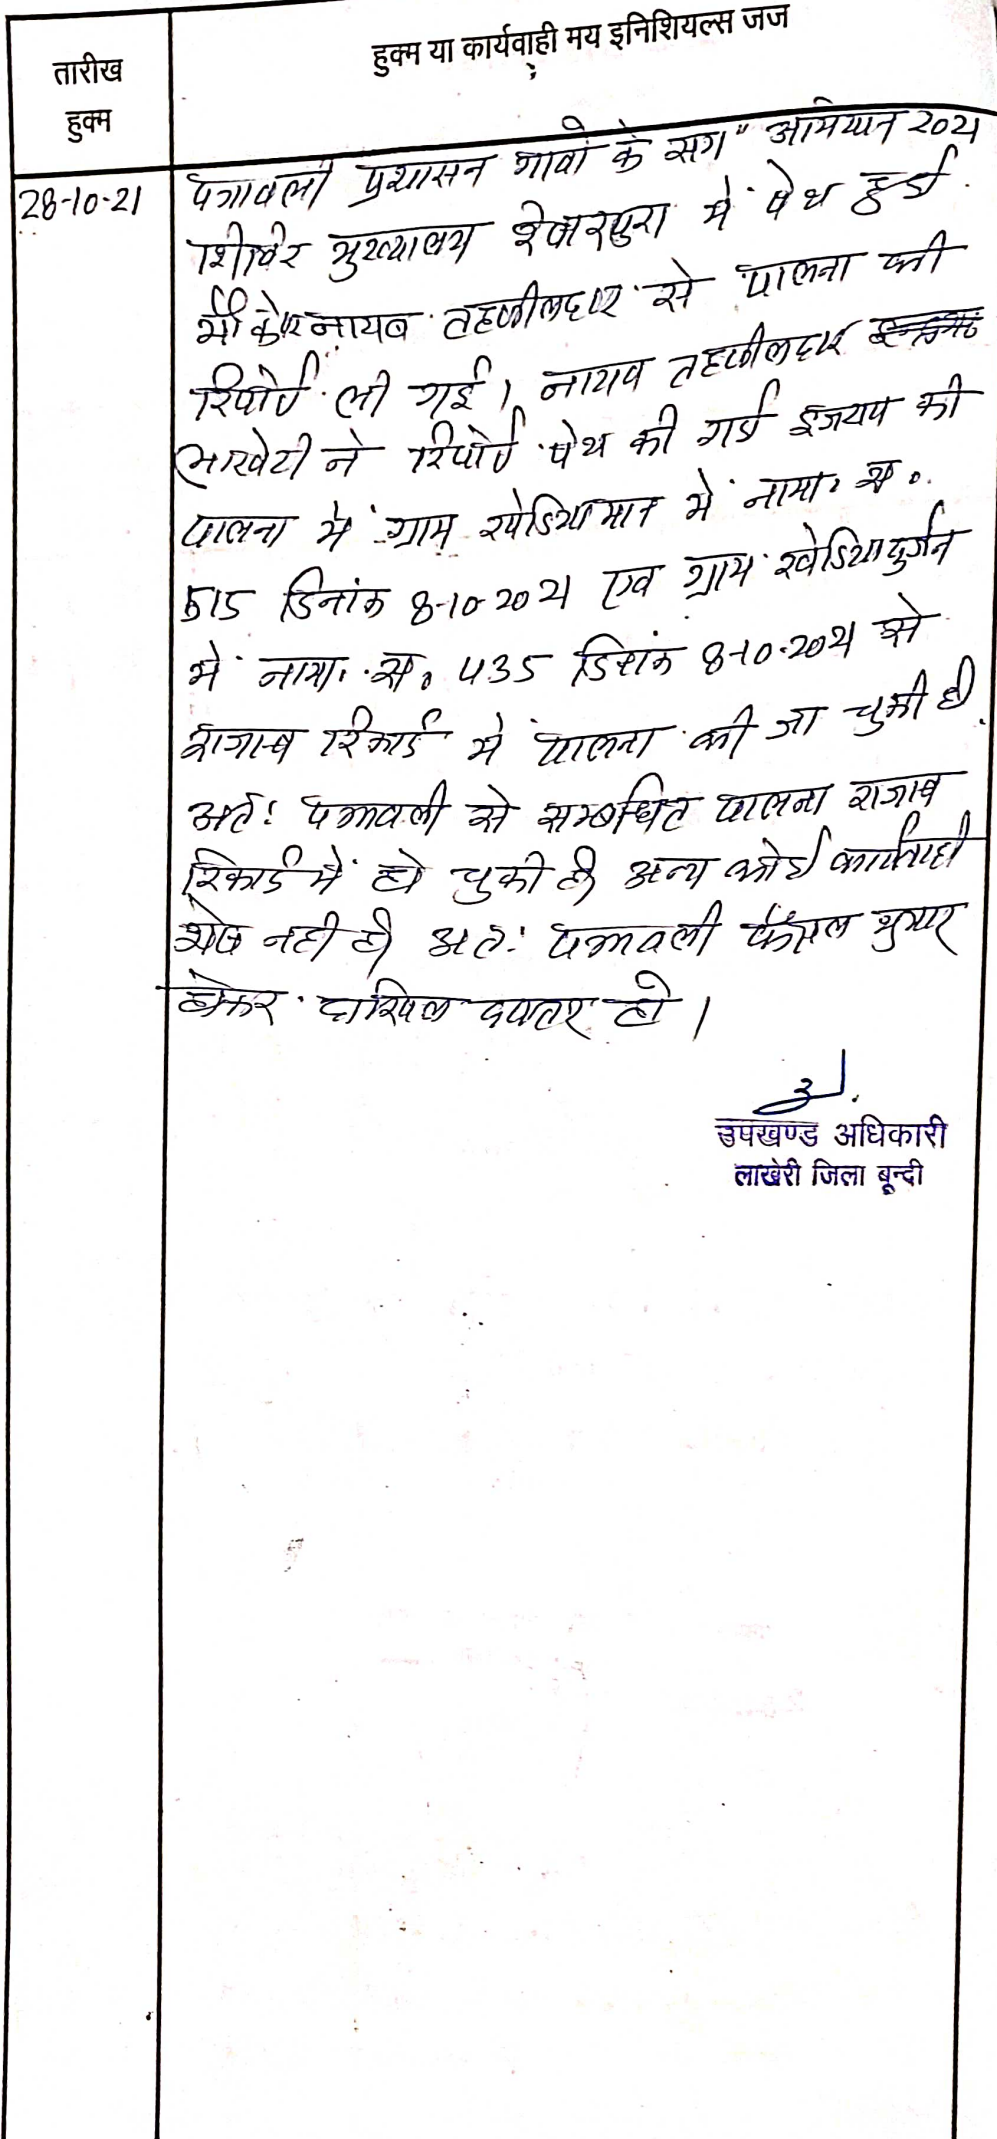 तारीख
हुक्म
हुक्म या कार्यवाही मय इनिशियल्स जज
28-10-21
पत्रावली प्रशासन गावो के संग" अभियान 2021
शिविर मुख्यालय में पेश हुई
मौके पर नायब तहसीलदार से पालना की
रिपोर्ट ली गई। नायब तहसीलदार
लाखेरी ने रिपोर्ट पेश की गई इजराय की
पालना में ग्राम खेडिया मान में नामा. स.
515 दिनांक 8-10-2021 एव ग्राम खेडिया दुर्जन
में नामा. स. 435 दिनांक 8-10-2021 से
राजस्व रिकार्ड में पालना की जा चुकी है
अत: पत्रावली से सम्बन्धित पालना राजस्व
रिकार्ड में हो चुकी है अन्य कोई कार्यवाही
शेष नही है अत: पत्रावली फैसल शुमार
होकर दाखिल दफ्तर हो।
उपखण्ड अधिकारी
लाखेरी जिला बून्दी